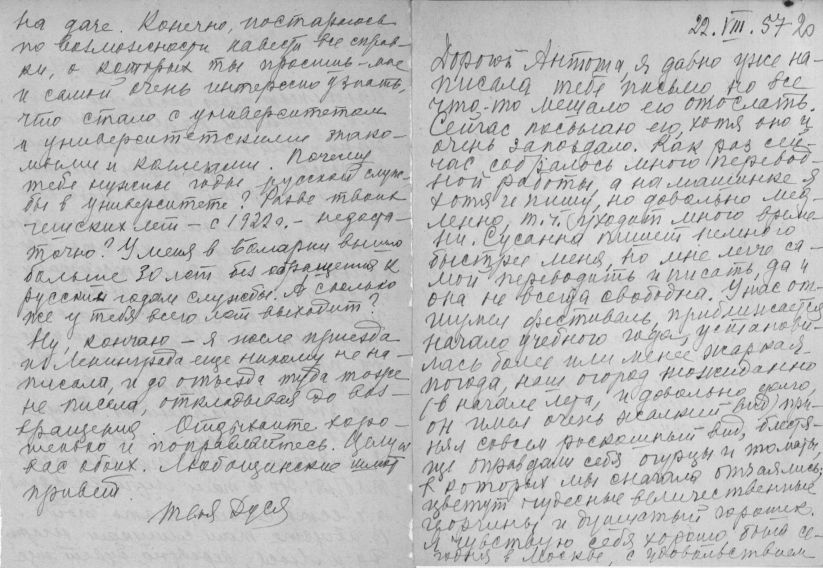 на даче. Конечно, постараюсь
по возможности навести все справ-
ки, о которых ты просишь – мне
и самой очень интересно узнать,
что стало с университетом
и университетскими знако-
мыми и коллегами. Почему
тебе нужны годы русской служ-
бы в университете? Разве твоих
чешских лет – с 1922 г. – недоста-
точно? У меня в Болгарии вышло
больше 30 лет без обращения к
русским годам службы. А сколько
же у тебя всего лет выходит?
Ну, кончаю – я после приезда
из Ленинграда еще никому не на-
писала, и до отъезда туда тоже
не писала, откладывая до воз-
вращения. Отдыхайте хоро-
шенько и поправляйтесь. Целую
вас обоих. Любощинские шлют
привет.
Твоя Дуся
22.VIII.57 20
Дорогой Антоша, я давно уже на-
писала тебе письмо, но все
что-то мешало его отослать.
Сейчас посылаю его, хотя оно и
очень запоздало. Как раз сей-
час собралось много перевод-
ной работы, а на машинке я
хотя и пишу, но довольно мед-
ленно, т.ч. уходит много време-
ни. Сусанна пишет немного
быстрее меня, но мне легче са-
мой переводить и писать, да и
она не всегда свободна. У нас от-
шумел фестиваль, приближается
начало учебного года, установи-
лась более или менее жаркая
погода, наш огород неожиданно
(в начале лета, и довольно долго,
он имел очень жалкий вид) при-
нял совсем роскошный вид, блестя-
ще оправдали себя огурцы и томаты,
в которых мы сначала отчаялись;
цветут чудесные величественные
георгины и душистый горошек.
Я чувствую себя хорошо, была се-
годня в Москве, с удовольствием